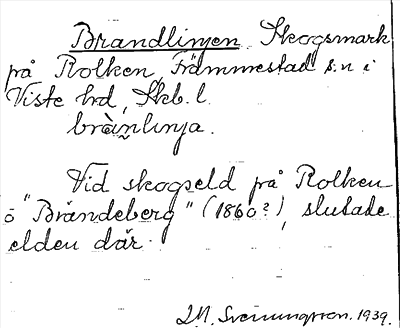 Brandlinjen Skogsmark
på Rolken, Främmestad s:n i
Viste hd, Skb. l.
bràn̰linja.
Vid skogseld på Rolken
o "Brandeberg" (1860?), slutade
elden där.
Sveningsson. 1939.